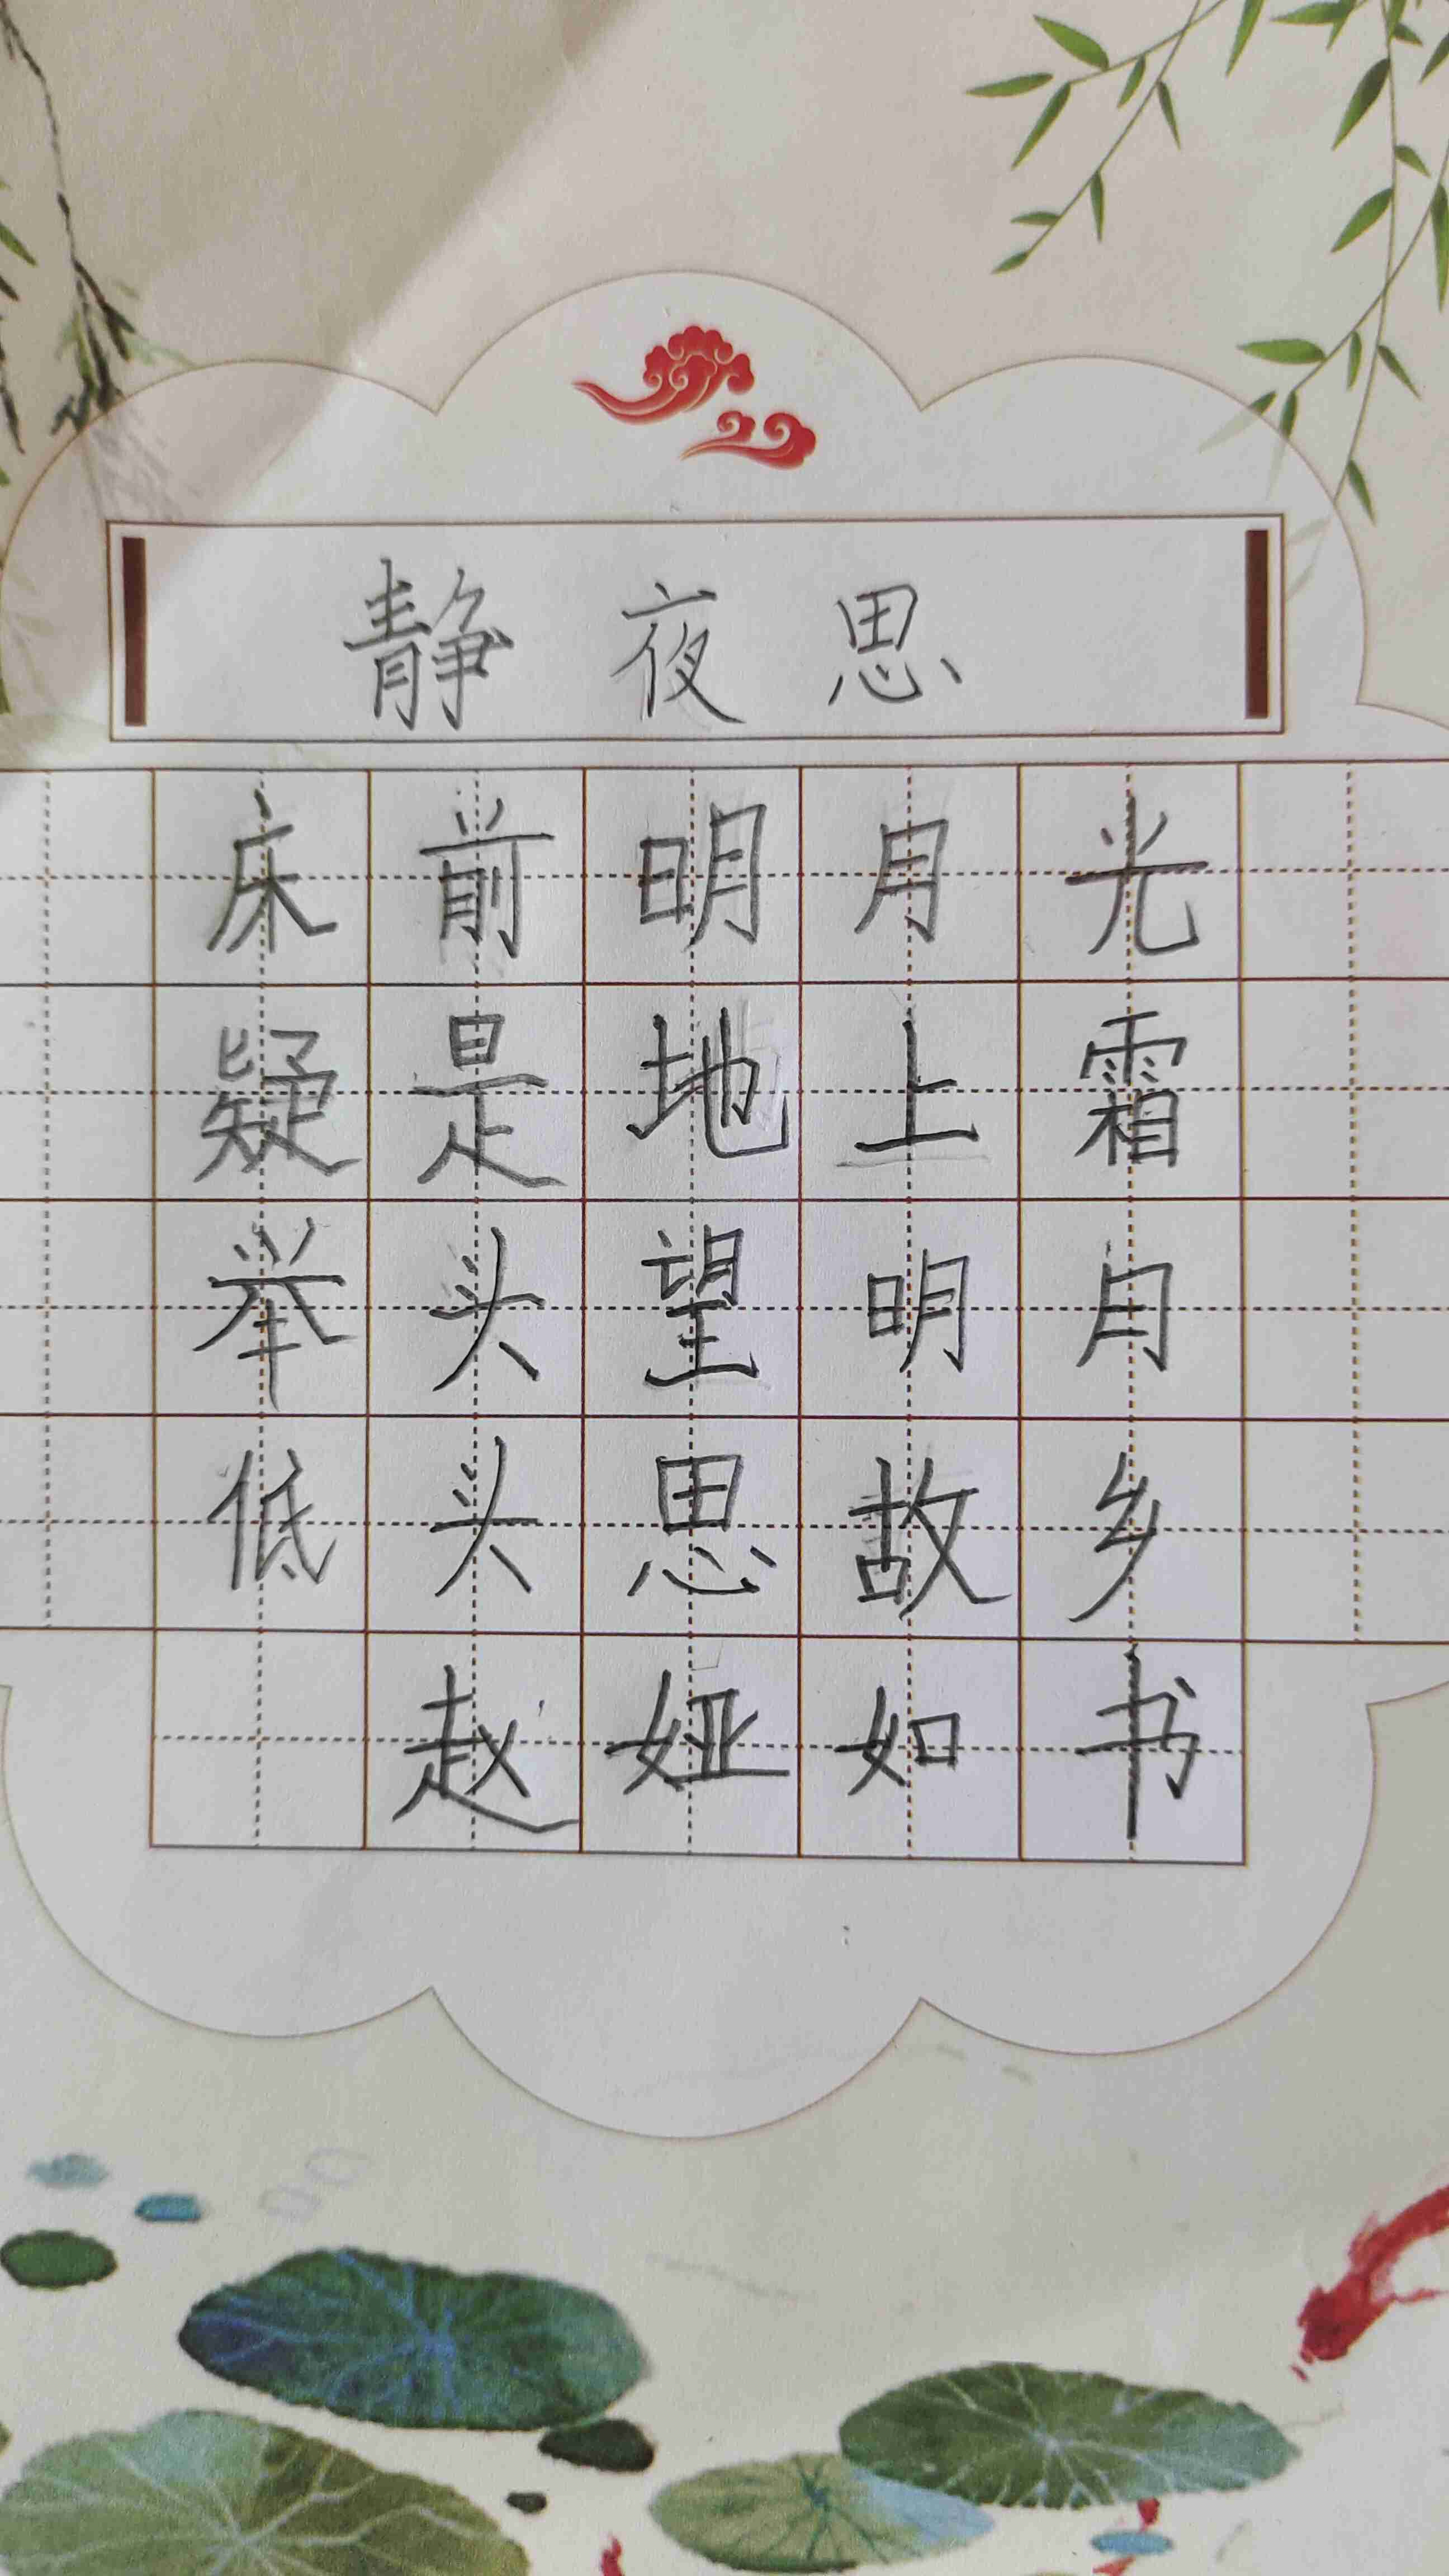 静夜思
床前明月光
疑是地上霜
举头望明月
低头思故乡
赵娅如书